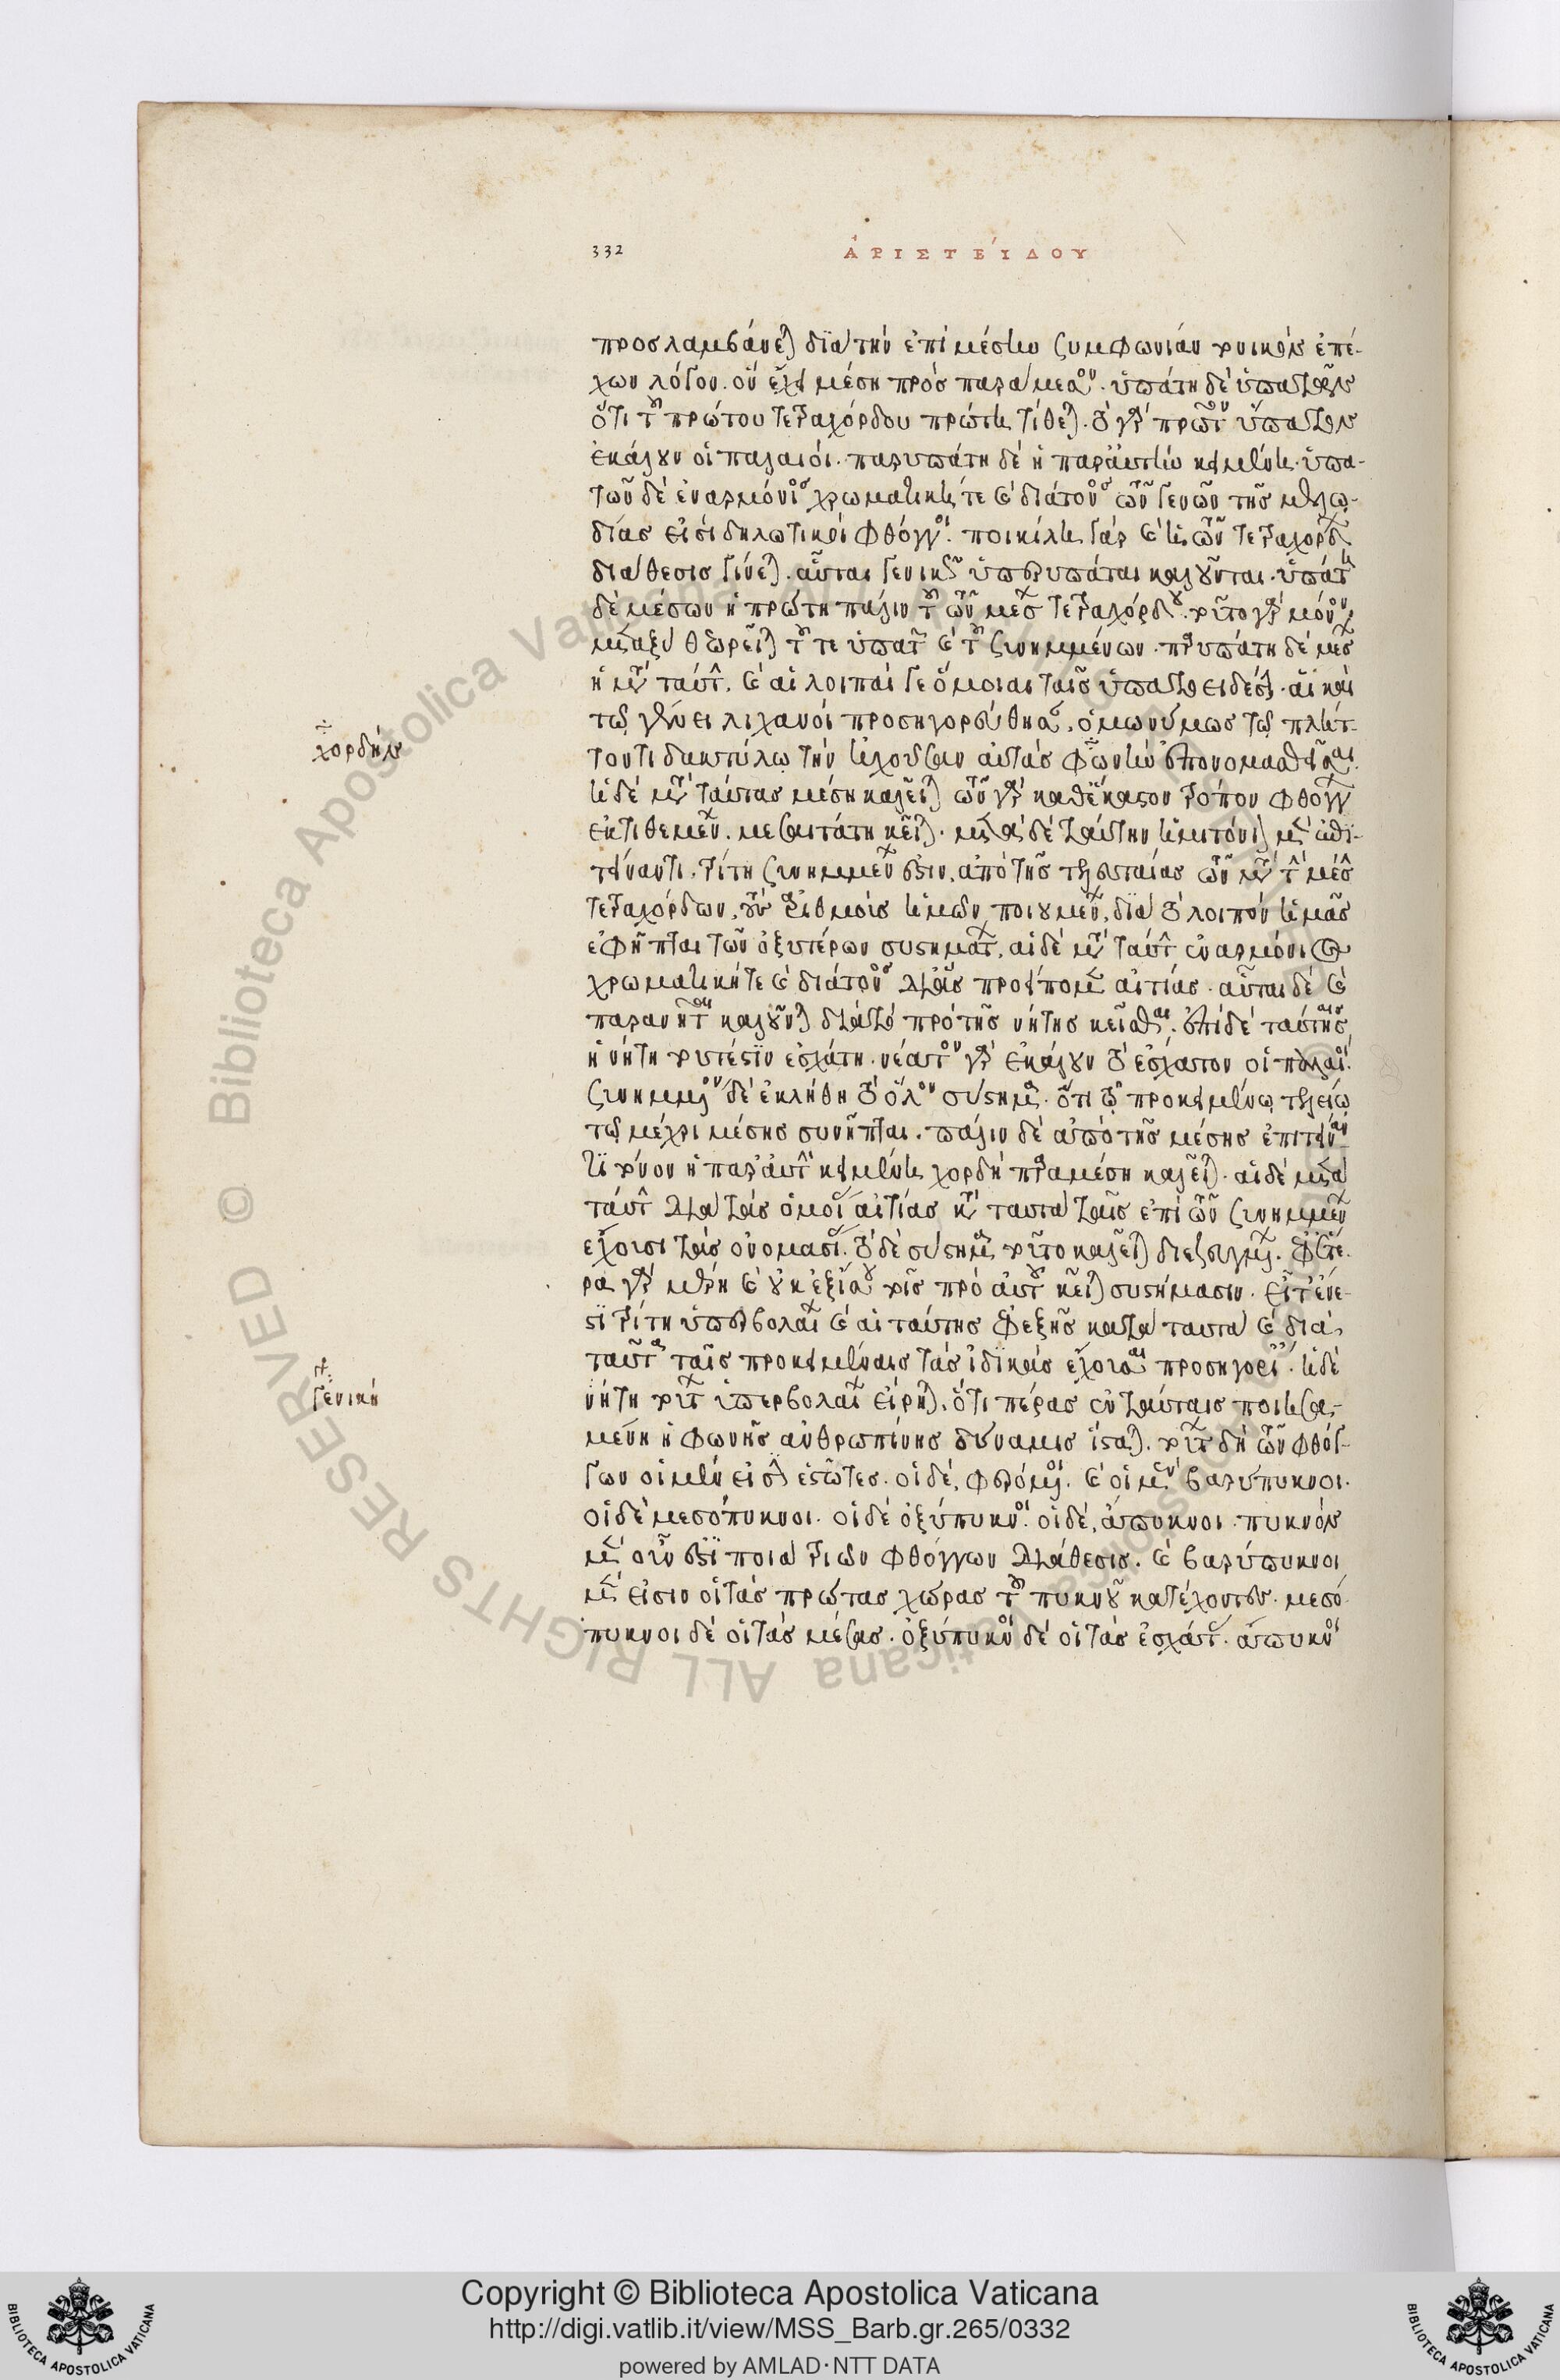 332
ἈΡΙΣΤΕΊΔΟΥ
προσλαμβάνεται διὰ τὴν ἐπὶ μέσην συμφωνίαν τονικὸν ἐπέ-
χων λόγον. ὃν ἔχει μέση πρὸς παραμέσον. ὑπάτη δὲ ὑπατῶν
ὅτι τοῦ πρώτου τετραχόρδου πρώτη τίθεται. τὸ γὰρ πρῶτον ὕπατον
ἐκάλουν οἱ παλαιοί. παρυπάτη δὲ ἡ παρ' αὐτὴν κειμένη. ὑπα-
τῶν δὲ ἐναρμόνιος χρωματική τε καὶ διάτονος τῶν γενῶν τῆς μελῳ-
δίας εἰσὶ δηλωτικοὶ φθόγγοι. ποικίλη γὰρ καὶ ἡ τῶν τετραχόρδων
διάθεσις γίνεται. αὗται γενικῶς ὑπερυπάται καλοῦνται. ὑπάτη
δὲ μέσων ἡ πρώτη πάλιν τοῦ τῶν μέσων τετραχόρδου. τοῦτο γὰρ μόνον
μεταξὺ θεωρεῖται τοῦ τε ὑπατῶν καὶ τοῦ συνημμένων. παρυπάτη δὲ μέσων
ἡ μετὰ ταύτην. καὶ αἱ λοιπαί γε ὅμοιαι ταῖς ὑπατοειδέσι. αἳ καὶ
χορδῶν
τῷ γένει λιχανοὶ προσηγορεύθησαν, ὁμωνύμως τῷ πλήτ-
τοντι δακτύλῳ τὴν ἠχοῦσαν αὐτὰς φωνὴν ἐπονομασθεῖσαι.
ἡ δὲ μετὰ ταύτας μέση καλεῖται τῶν γὰρ καθ' ἕκαστον τρόπον φθόγγων
ἐκτιθεμένων. μεσαιτάτη κεῖται. μετὰ δὲ ταύτην ἡμιτόνιον μὲν ἐπι-
τείναντι. τρίτη συνημμένων ἐστίν, ἀπὸ τῆς τελευταίας τῶν μετὰ τὴν μέσην
τετραχόρδων, τὸν ἀριθμὸν ἡμῶν ποιουμένων, διὰ τὸ λοιπὸν ἡμᾶς
ἐφῆπται τῶν ὀξυτέρων συστημάτων, αἱ δὲ μετὰ ταύτην ἐναρμόνιος καὶ
χρωματική τε καὶ διάτονος διὰ τὰς προειπομένας αἰτίας. αὗται δὲ καὶ
παρανῆται καλοῦνται διὰ τὸ πρὸ τῆς νήτης κεῖσθαι. ἐπὶ δὲ ταύταις
ἡ νήτη τουτέστιν ἐσχάτη. νέατον γὰρ ἐκάλουν τὸ ἔσχατον οἱ παλαιοί.
συνημμένον δὲ ἐκλήθη τὸ ὅλον σύστημα. ὅτι τῷ προκειμένῳ τελείῳ
τῷ μέχρι μέσης συνῆπται. πάλιν δὲ ἀπὸ τῆς μέσης ἐπιτείναν-
τι τόνον ἡ παρ' αὐτὴν κειμένη χορδὴ παραμέση καλεῖται. αἱ δὲ μετὰ
ταύτην διὰ τὰς ὁμοίας αἰτίας κατὰ ταὐτὰ ταῖς ἐπὶ τῶν συνημμένων
ἔχουσι τὰς ὀνομασίας. τὸ δὲ σύστημα τοῦτο καλεῖται διεζευγμένων.
ρα γὰρ μέρη καὶ οὐκ ἐξ ἴσου τοῖς πρὸ αὐτοῦ κεῖται συστήμασιν. εἶτ' ἔνε-
στι τρίτη ὑπερβολαίων καὶ αἱ ταύτης ἐφεξῆς κατὰ ταὐτὰ καὶ διὰ
γενικὴ
ταῦτα ταῖς προκειμέναις τὰς ἰδικὰς ἔχουσαι προσηγορίας. ἡ δὲ
νήτη τούτων ὑπερβολαίων εἴρηται, ὅτι πέρας ἐν ταύταις ποιησα-
μένη ἡ φωνῆς ἀνθρωπίνης δύναμις ἵσταται. τούτων δὴ τῶν φθόγ-
γων οἱ μέν εἰσιν ἑστῶτες. οἱ δὲ, φερόμενοι. καὶ οἱ μὲν βαρύπυκνοι.
οἱ δὲ μεσόπυκνοι. οἱ δὲ ὀξύπυκνοι. οἱ δὲ, ἄπυκνοι. πυκνὸν
μὲν οὖν ἐστι ποιὰ τριῶν φθόγγων διάθεσις. καὶ βαρύπυκνοι
μὲν εἰσιν οἱ τὰς πρώτας χώρας τοῦ πυκνοῦ κατέχοντες. μεσό-
πυκνοι δὲ οἱ τὰς μέσας. ὀξύπυκνοι δὲ οἱ τὰς ἐσχάτας. ἄπυκνοι
Copyright © Biblioteca Apostolica Vaticana
http://digi.vatlib.it/view/MSS_Barb.gr.265/0332
powered by AMLAD·NTT DATA